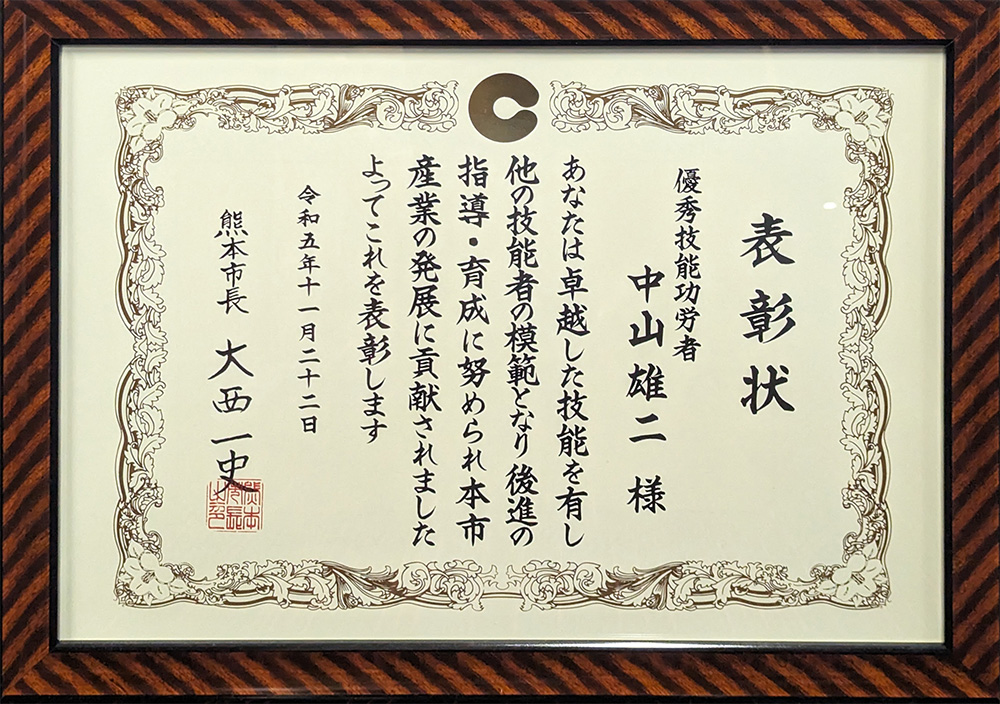 表彰状
優秀技能功労者
中山雄二 様
あなたは卓越した技能を有し
他の技能者の模範となり後進の
指導・育成に努められ本市
産業の発展に貢献されました
よってこれを表彰します
令和五年十一月二十二日
熊本市長 大西一史
熊本市長之印